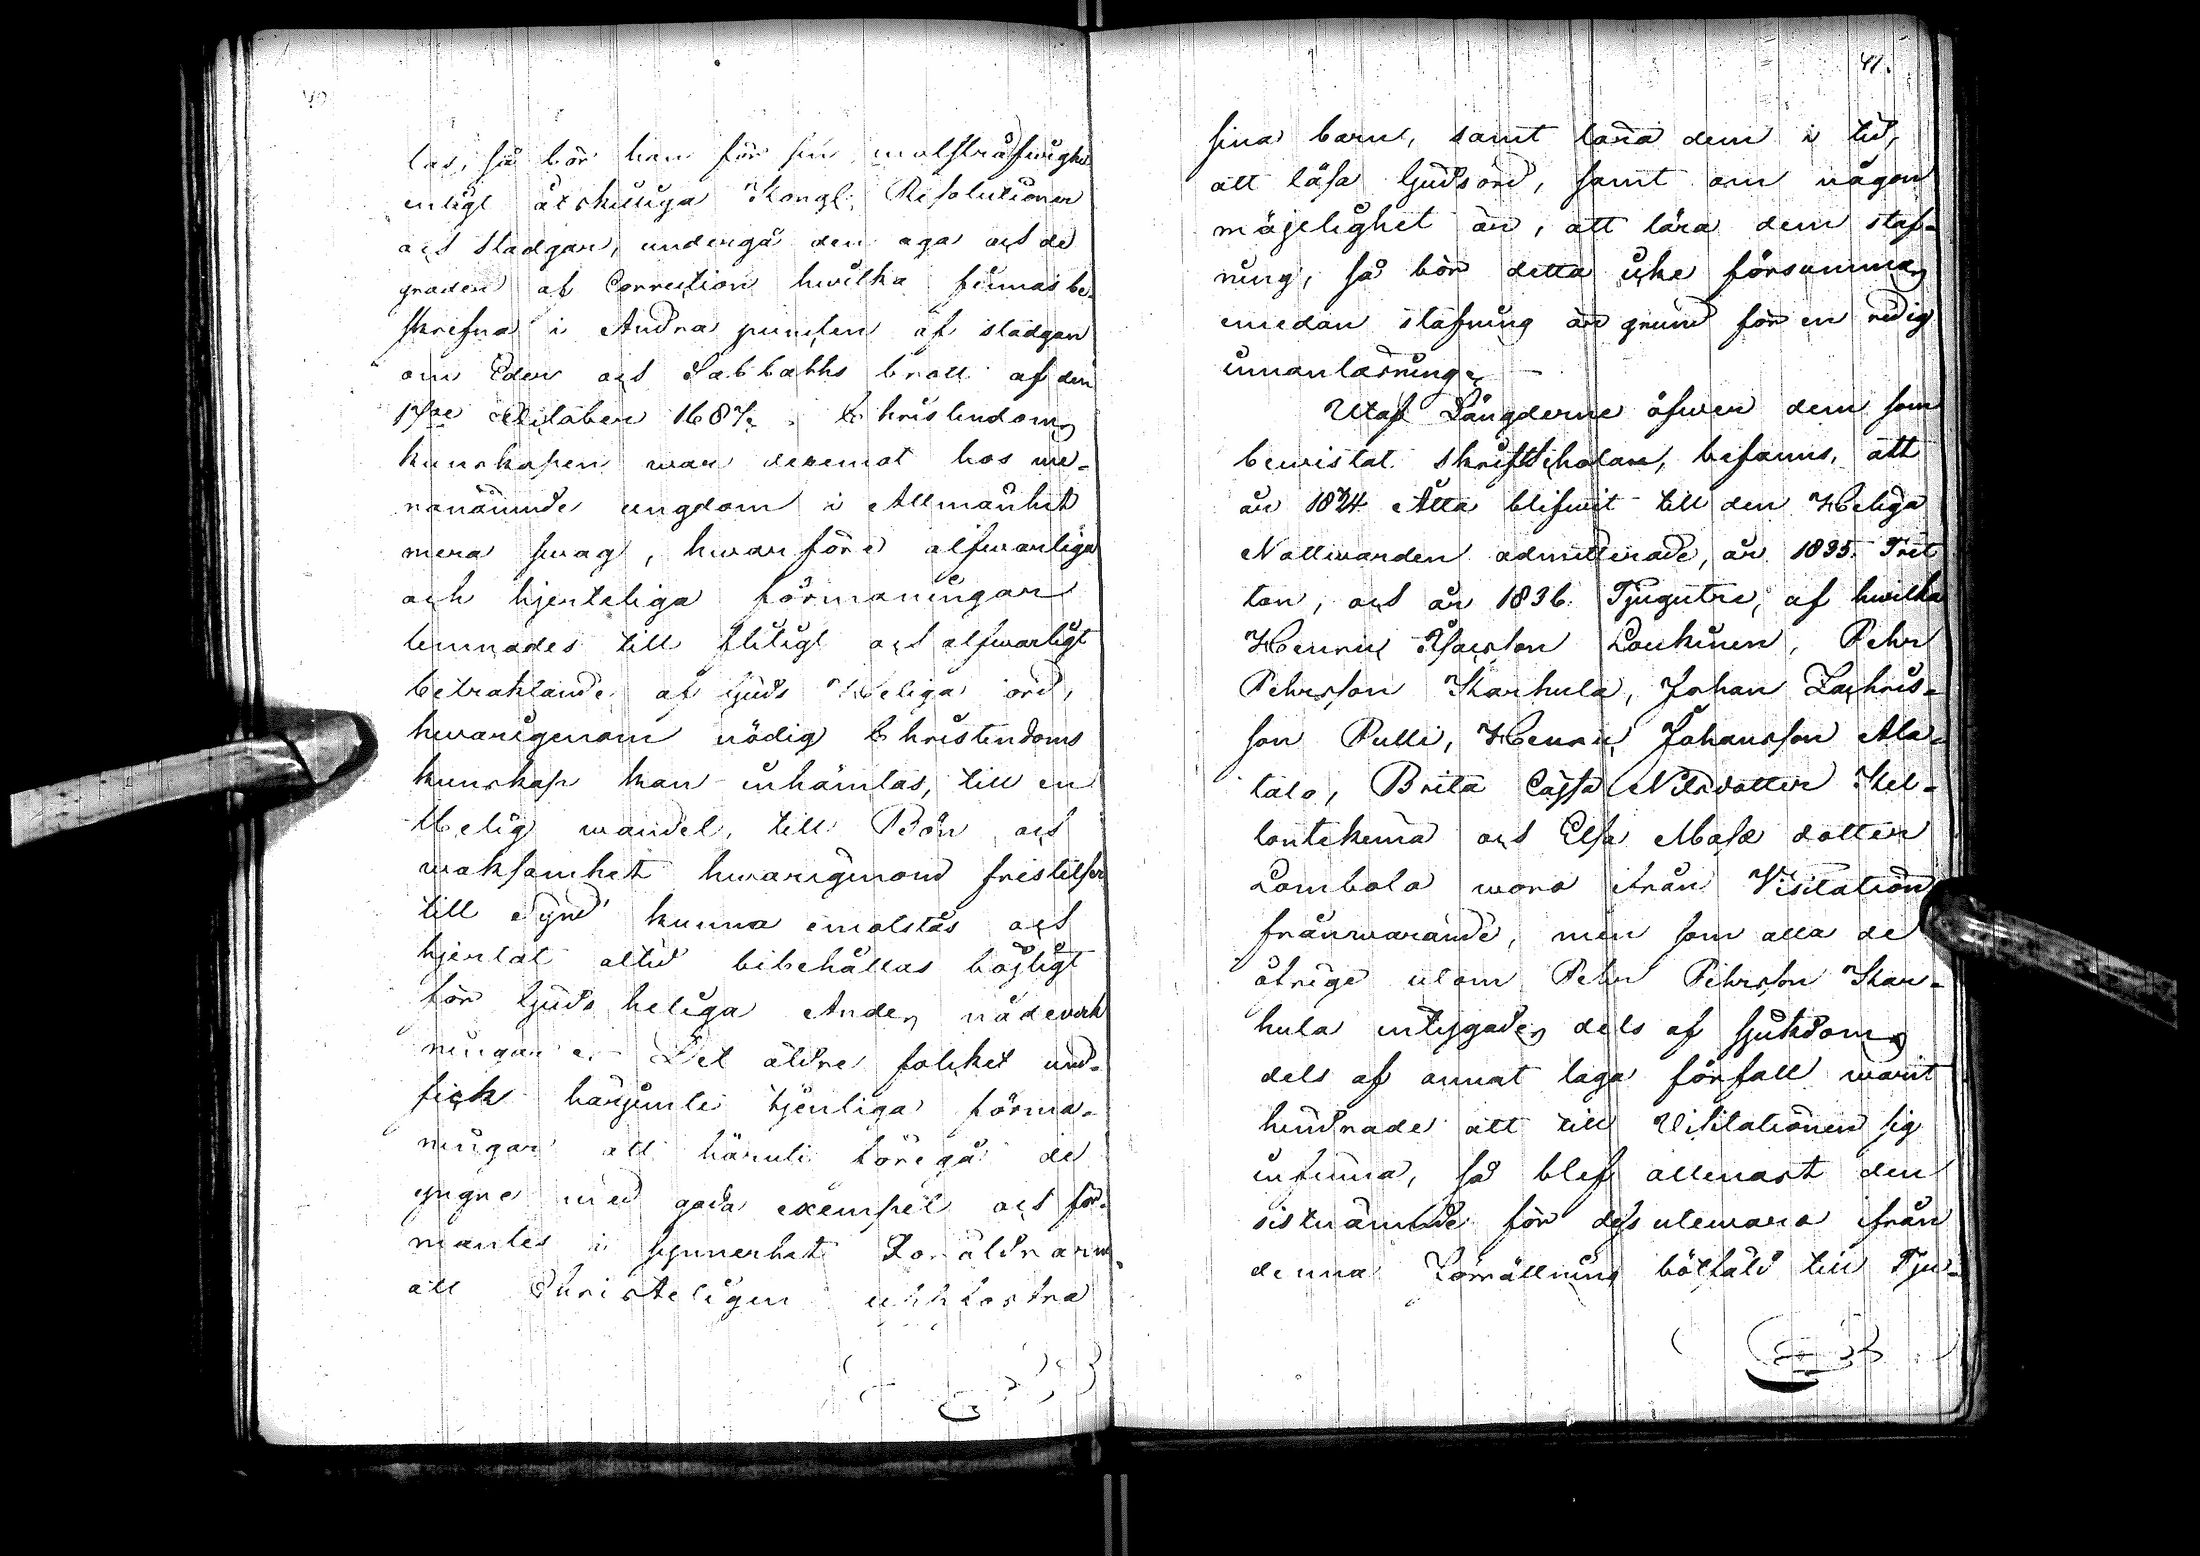 40
las, så bör han för sin motsträfwighet
enligt åtskilliga Kongl. Resolutioner
och Stadgar, undergå den aga och de
grader af Correction hwilka finnas be-
skrefna i Andra puncten af stadgan
om Eder och Sabbaths brott af den
17de October 1687. Christendoms
kunskapen war deremot hos me-
ranämnde ungdom i Allmänhet
mera swag, hwarföre alfwarliga
och hjerteliga förmaningar
lemnades till flitigt och alfwarligt
betraktande af Guds Heliga ord,
hwarigenom nödig Christendoms
kunskap kan inhämtas, till en
Helig wandel, till Bön och
waksamhet hwarigenom frestelser
till Synd kunna emotstås och
hjertat altid bibehållas böjligt
för Guds heliga Andes nådewerk
ningar. Det äldre folket und-
fick härjemte tjenliga förma-
ningar att häruti föregå de
yngre med goda exempel och för-
mantes i synnerhet Föräldrarne
att Christeligen uppfostra
41.
sina barn, samt lära dem i tid,
att läsa Guds ord, samt om någon
möjelighet är, att lära dem staf-
ning, så bör detta icke försummas
emedan stafning är grund för en redig
innanläsning.
Utaf Längderne öfwer dem som
bewistat Skriftscholan, befanns, att
år 1834 Åtta blifwit till den Heliga
Nattwarden admitterade, år 1835 Tret
ton, och år 1836 Tjugutre, af hwilka
Henric Isacsson Loukinen, Pehr
Pehrsson Karhula, Johan Zachris-
son Pulli, Henric Johansson Ala-
talo, Brita Cajsa Nilsdotter Kel-
lontekemä och Elsa Mats dotter
Lombolo woro ifrån Visitation
frånwarande, men som alla de
öfrige utom Pehr Pehrsson Kar-
hula intygades dels af sjukdom,
dels af annat laga förfall warit
hindrade att till Visitationen sig
infinna, så blef allenast den
sistnämnde för dess utewaro ifrån
denna Förrättning bötfäld till Tju-